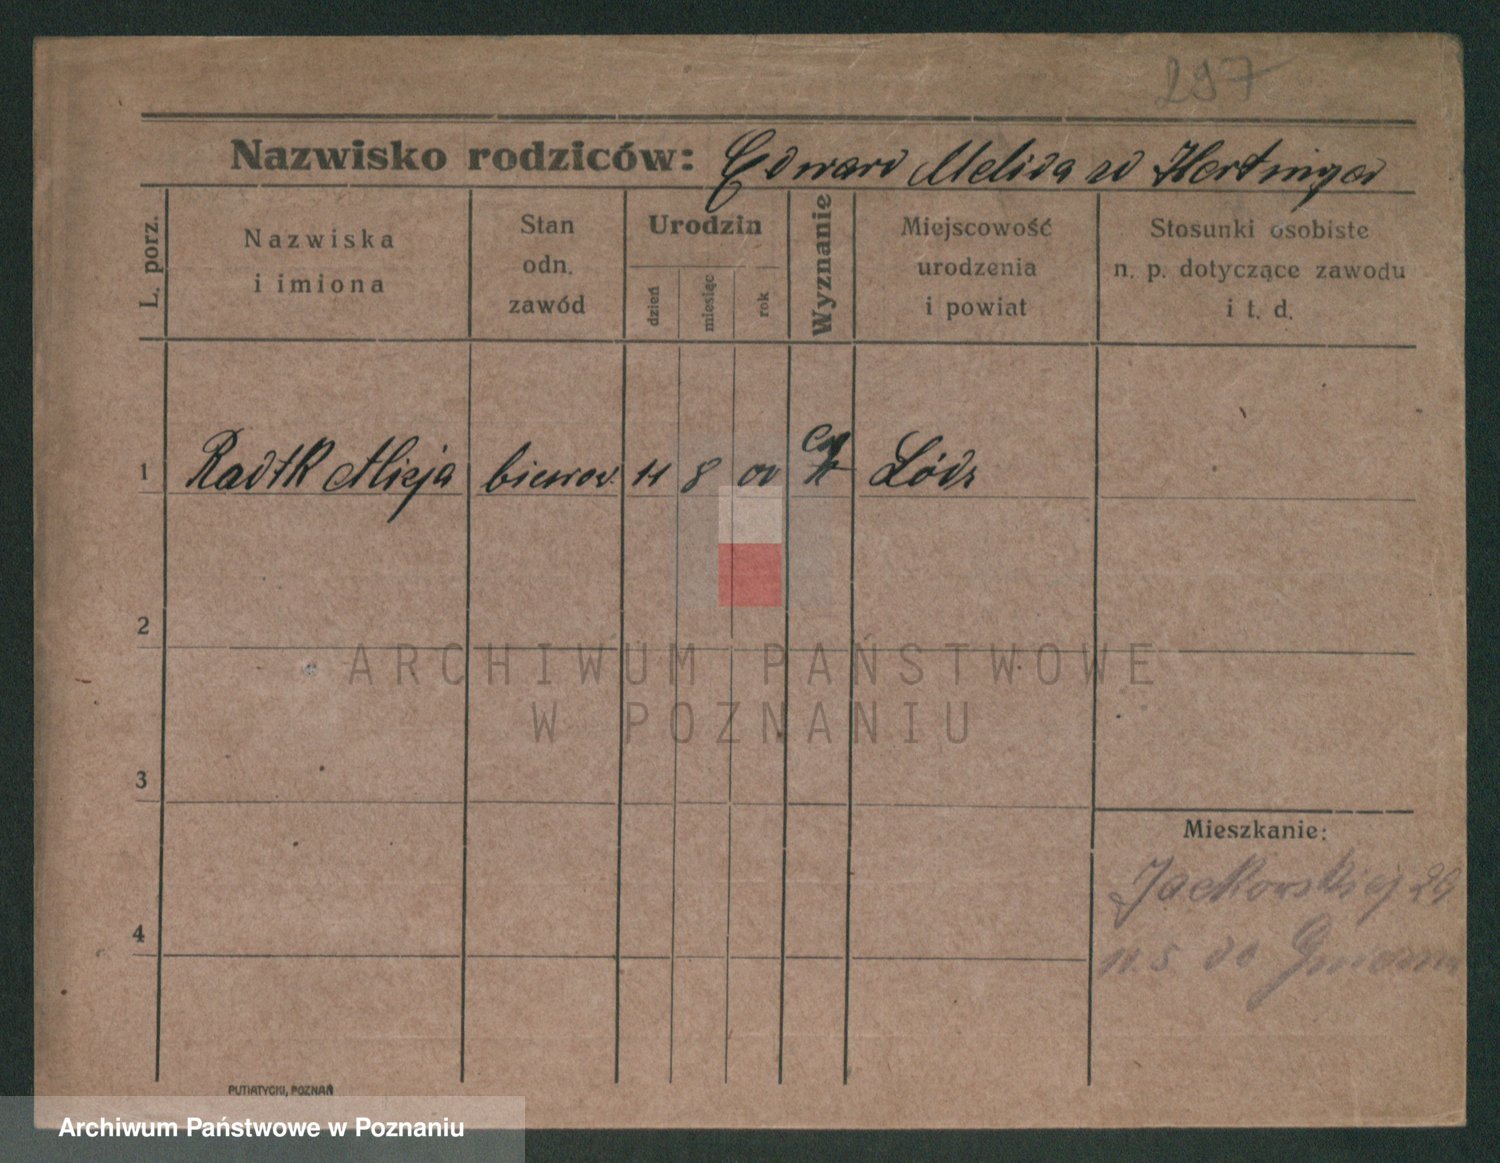 297
Nazwisko rodziców: Edward Melida zd Hertinger
L. porz.
Nazwiska
i imiona
Stan
odn.
zawód
Urodzin
dzień
miesiąc
rok
Wyznanie
Miejscowość
urodzenia
i powiat
Stosunki osobiste
n. p. dotyczące zawodu
i t. d.
1 Radtk Alicja 11 8 00 Łódz
2
ARCHIWUM PAŃSTWOWE
W POZNANIU
3
Mieszkanie:
Jackowskiej 29
4
n. 5 do
PUTIATYCKI, POZNAŃ
Archiwum Państwowe w Poznaniu